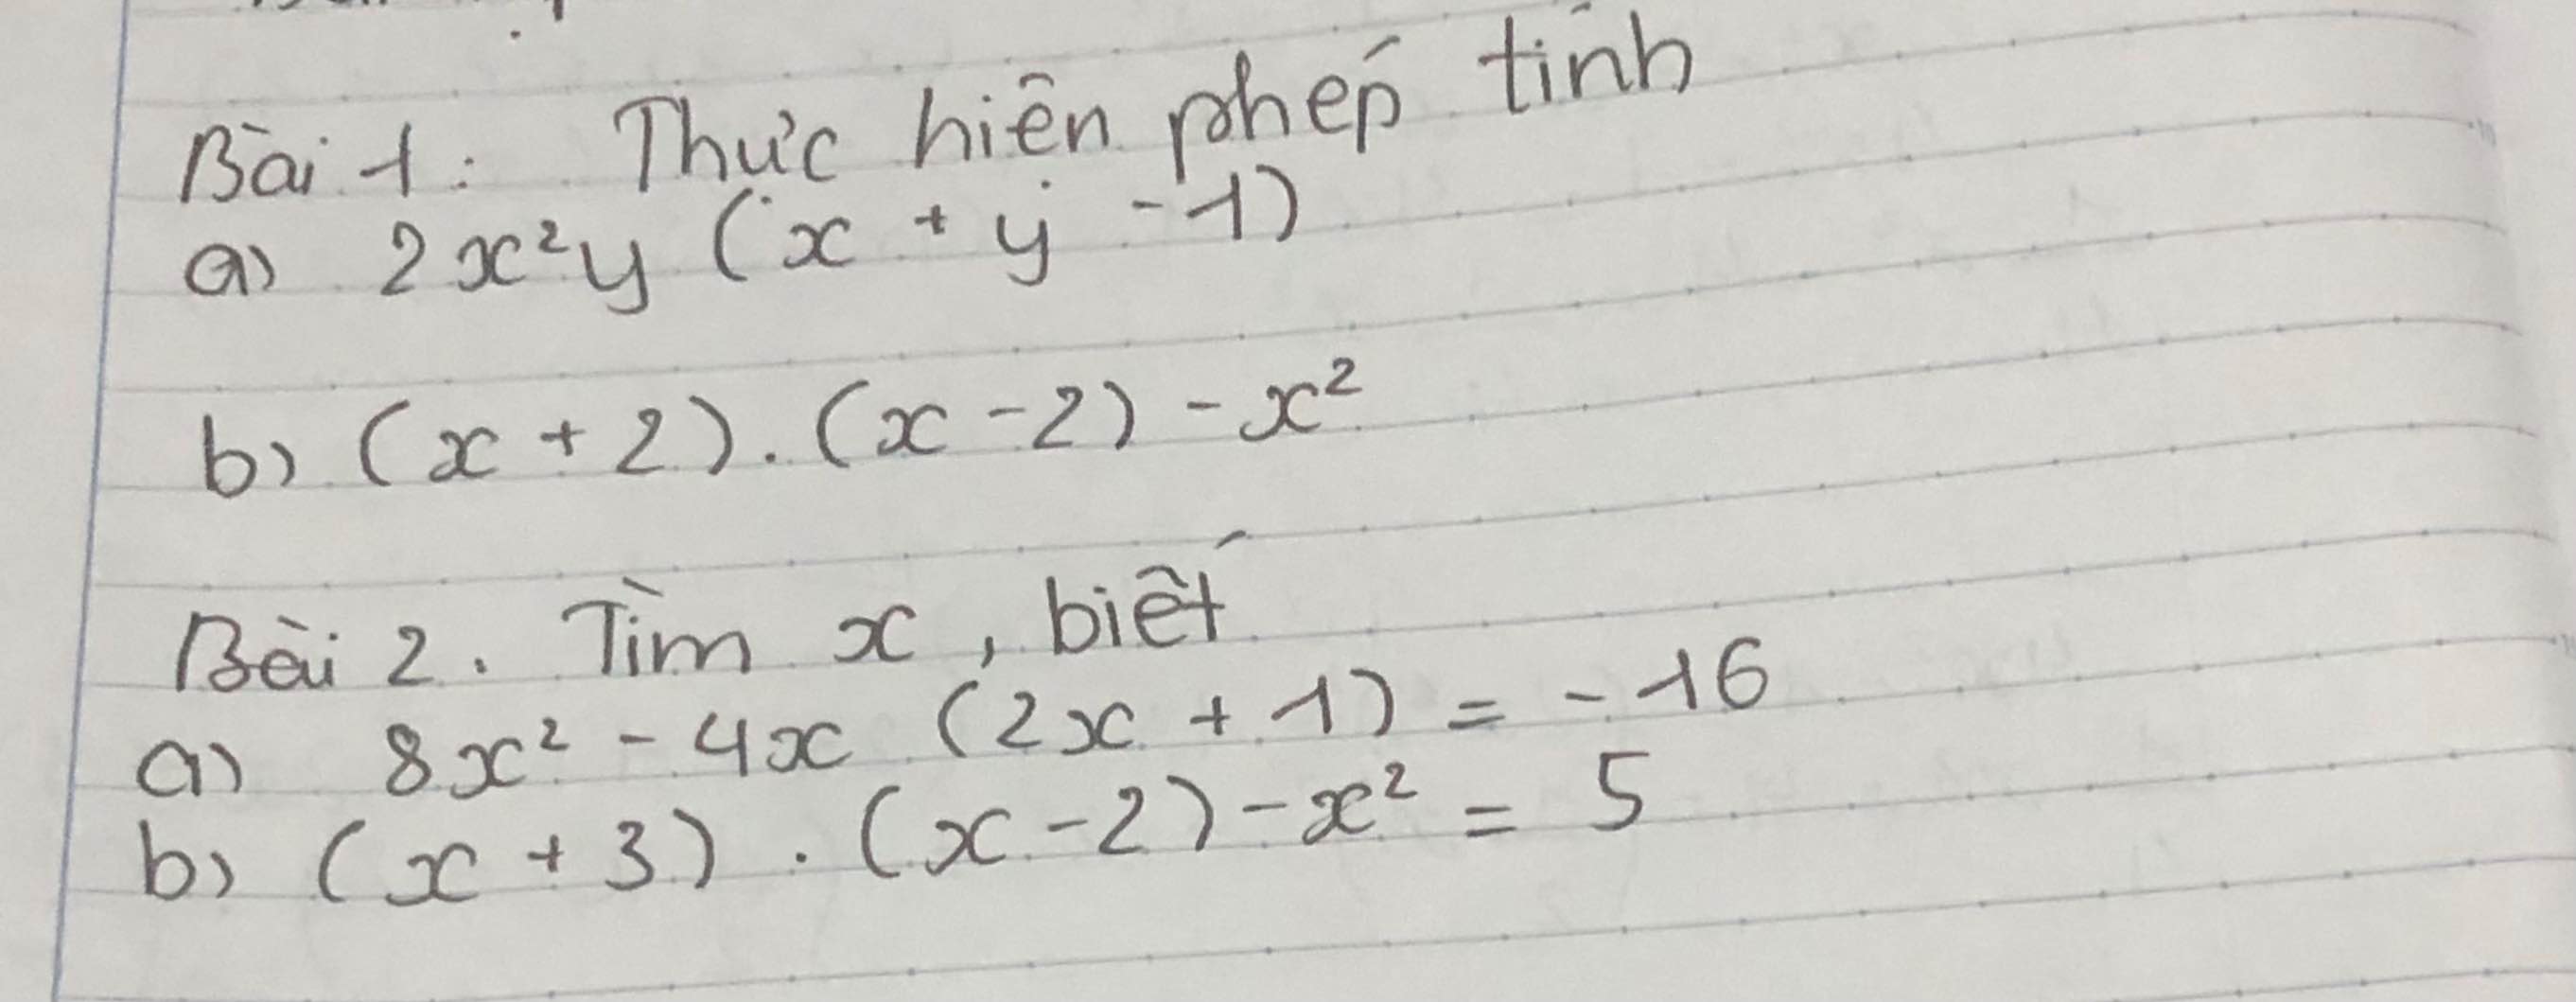 Bài 1: Thực hiện phép tính
a) 2x²y (x + y - 1)
b) (x + 2) . (x - 2) - x²
Bài 2. Tìm x, biết
a) 8x² - 4x (2x + 1) = - 16
b) (x + 3) . (x - 2) - x² = 5